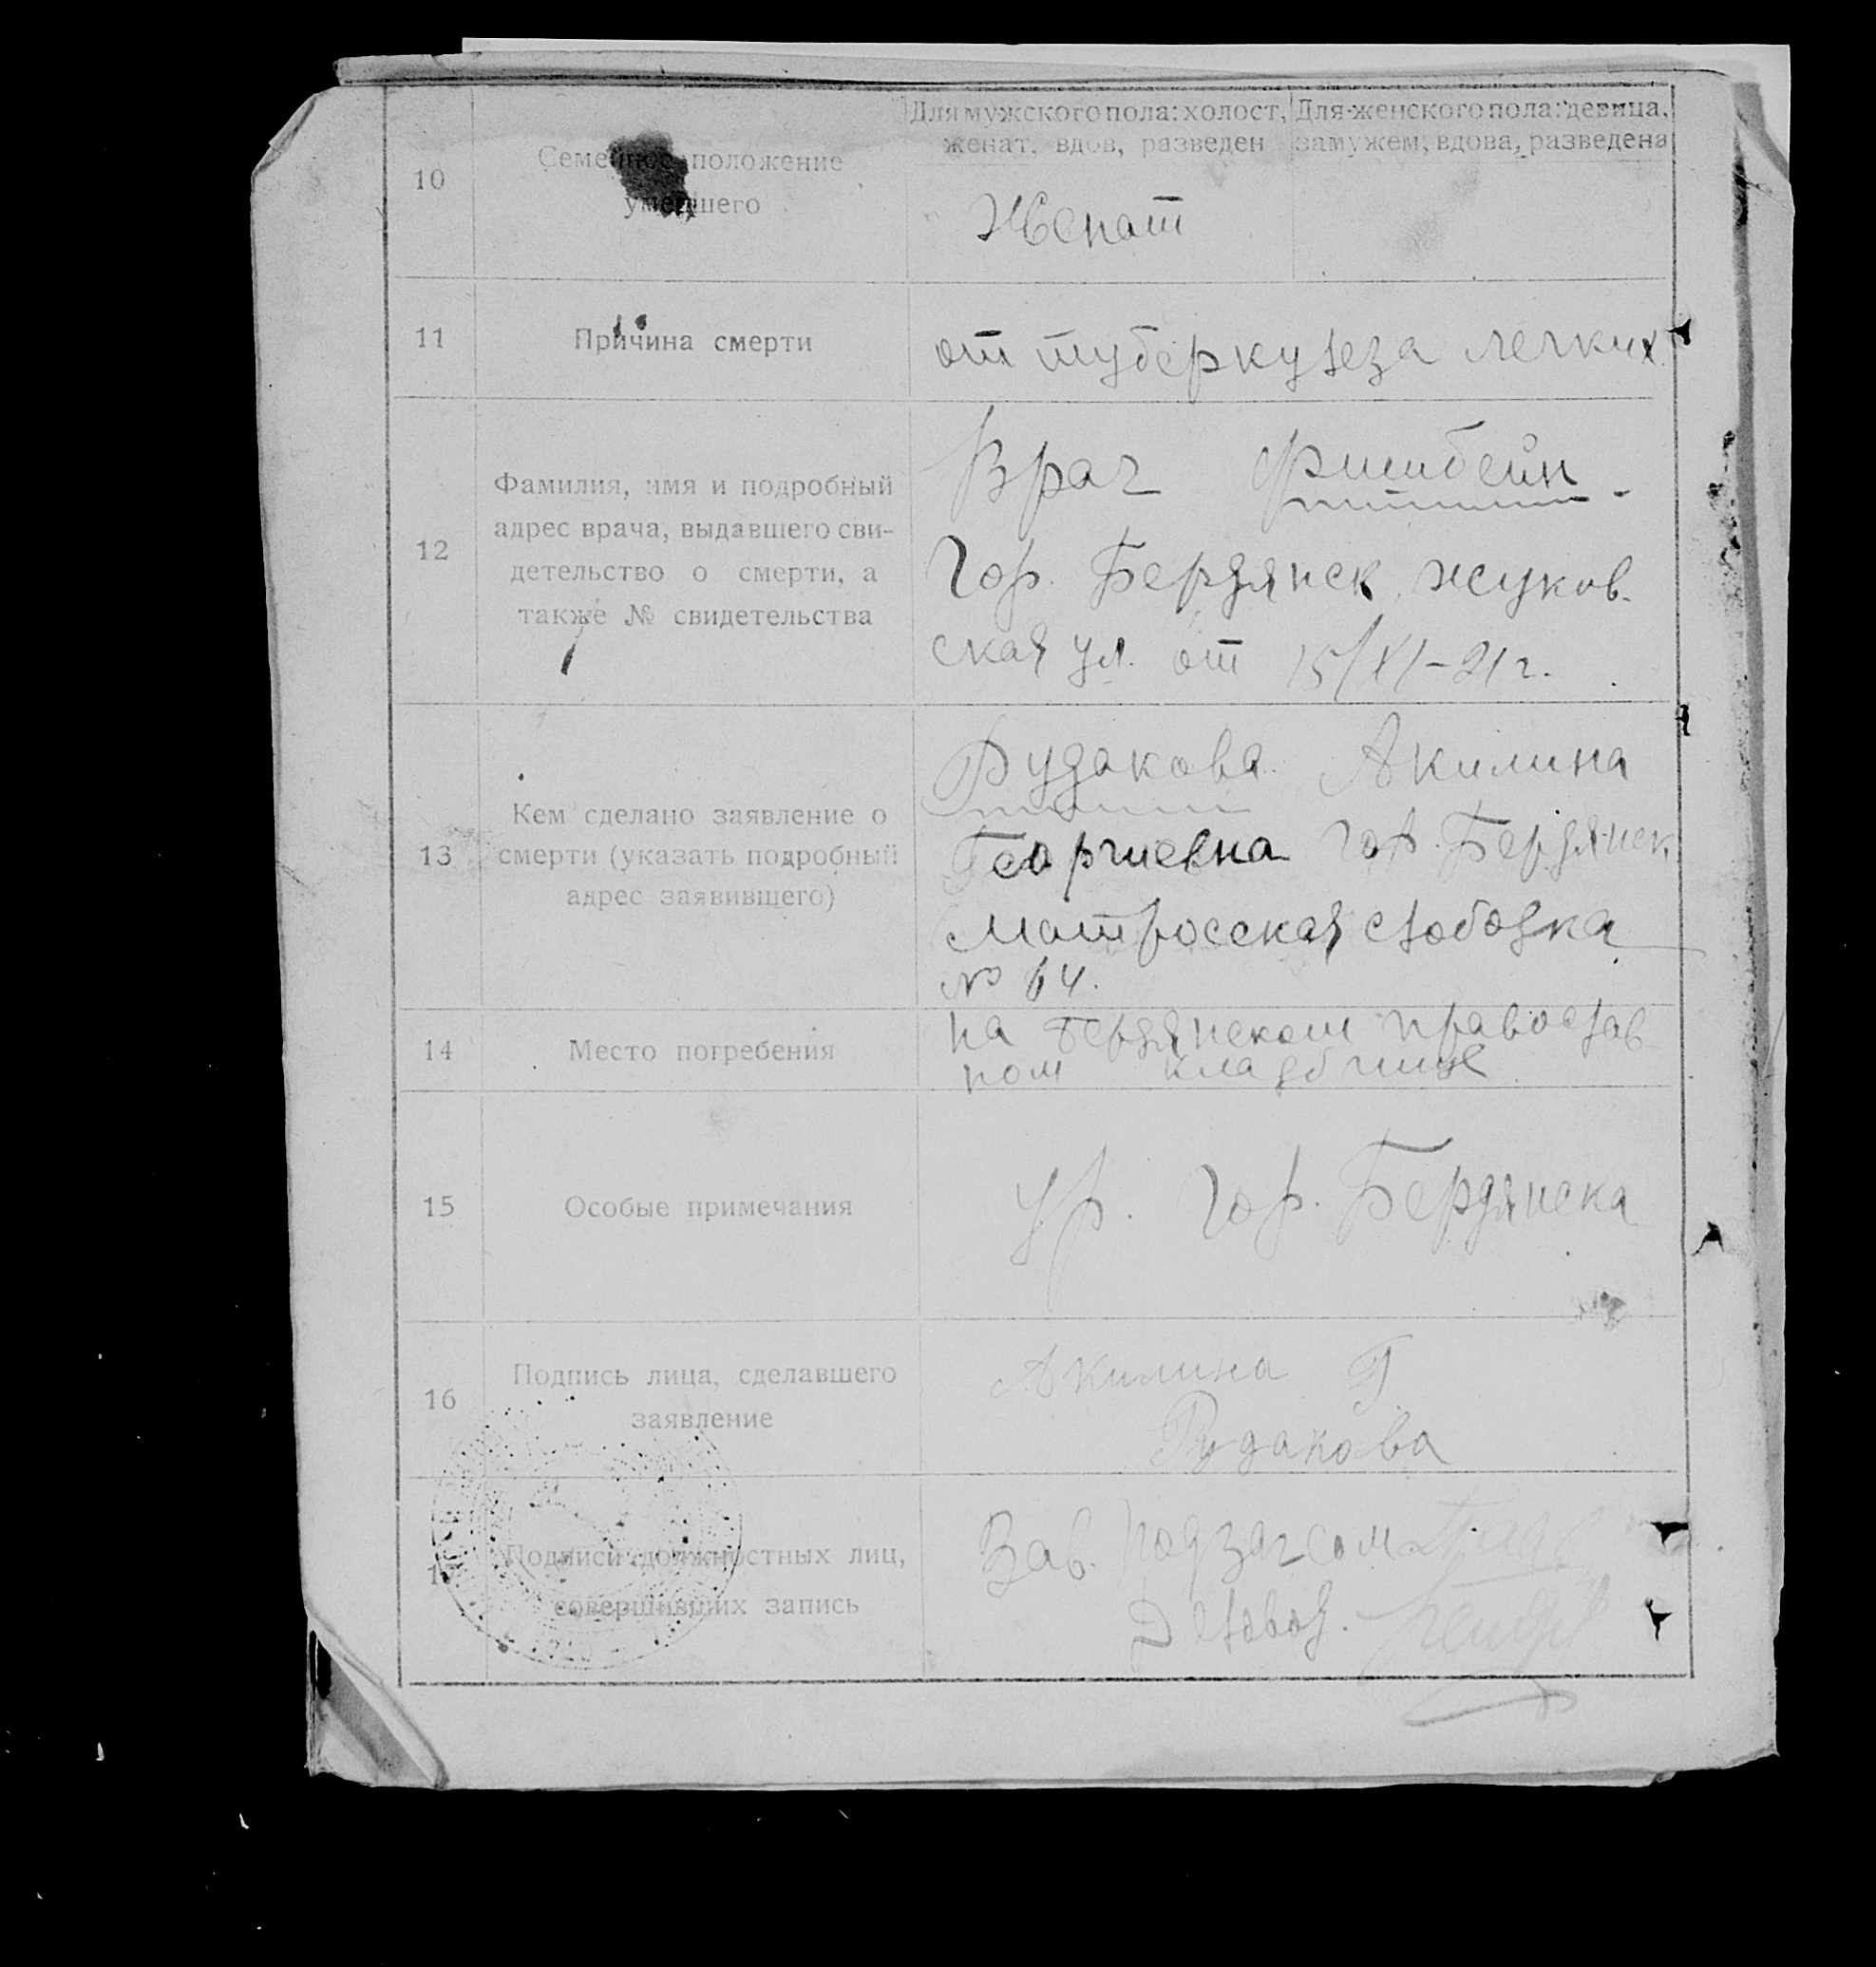 Для мужского пола: холост, женат, вдов, разведен
Для женского пола: девица, замужем, вдова, разведена
10
Семейное положение
умершего
Женат
11
Причина смерти
от туберкулеза легких
12
Фамилия, имя и подробный
адрес врача, выдавшего сви-
детельство о смерти, а
также № свидетельства
Врач Фишбейн
Гор. Бердянск Жуков-
ская ул. от 15/XI-21 г.
13
Кем сделано заявление о
смерти (указать подробный
адрес заявившего)
Рудакова Акилина
Георгиевна гор. Бердянск
Матросская слободка
№ 64.
14
Место погребения
на Бердянском православ
ном кладбище
15
Особые примечания
Ур. гор. Бердянска
16
Подпись лица, сделавшего
заявление
Акилина Г
Рудакова
17
Подписи должностных лиц,
совершивших запись
Зав. подзагсом
Деловод.